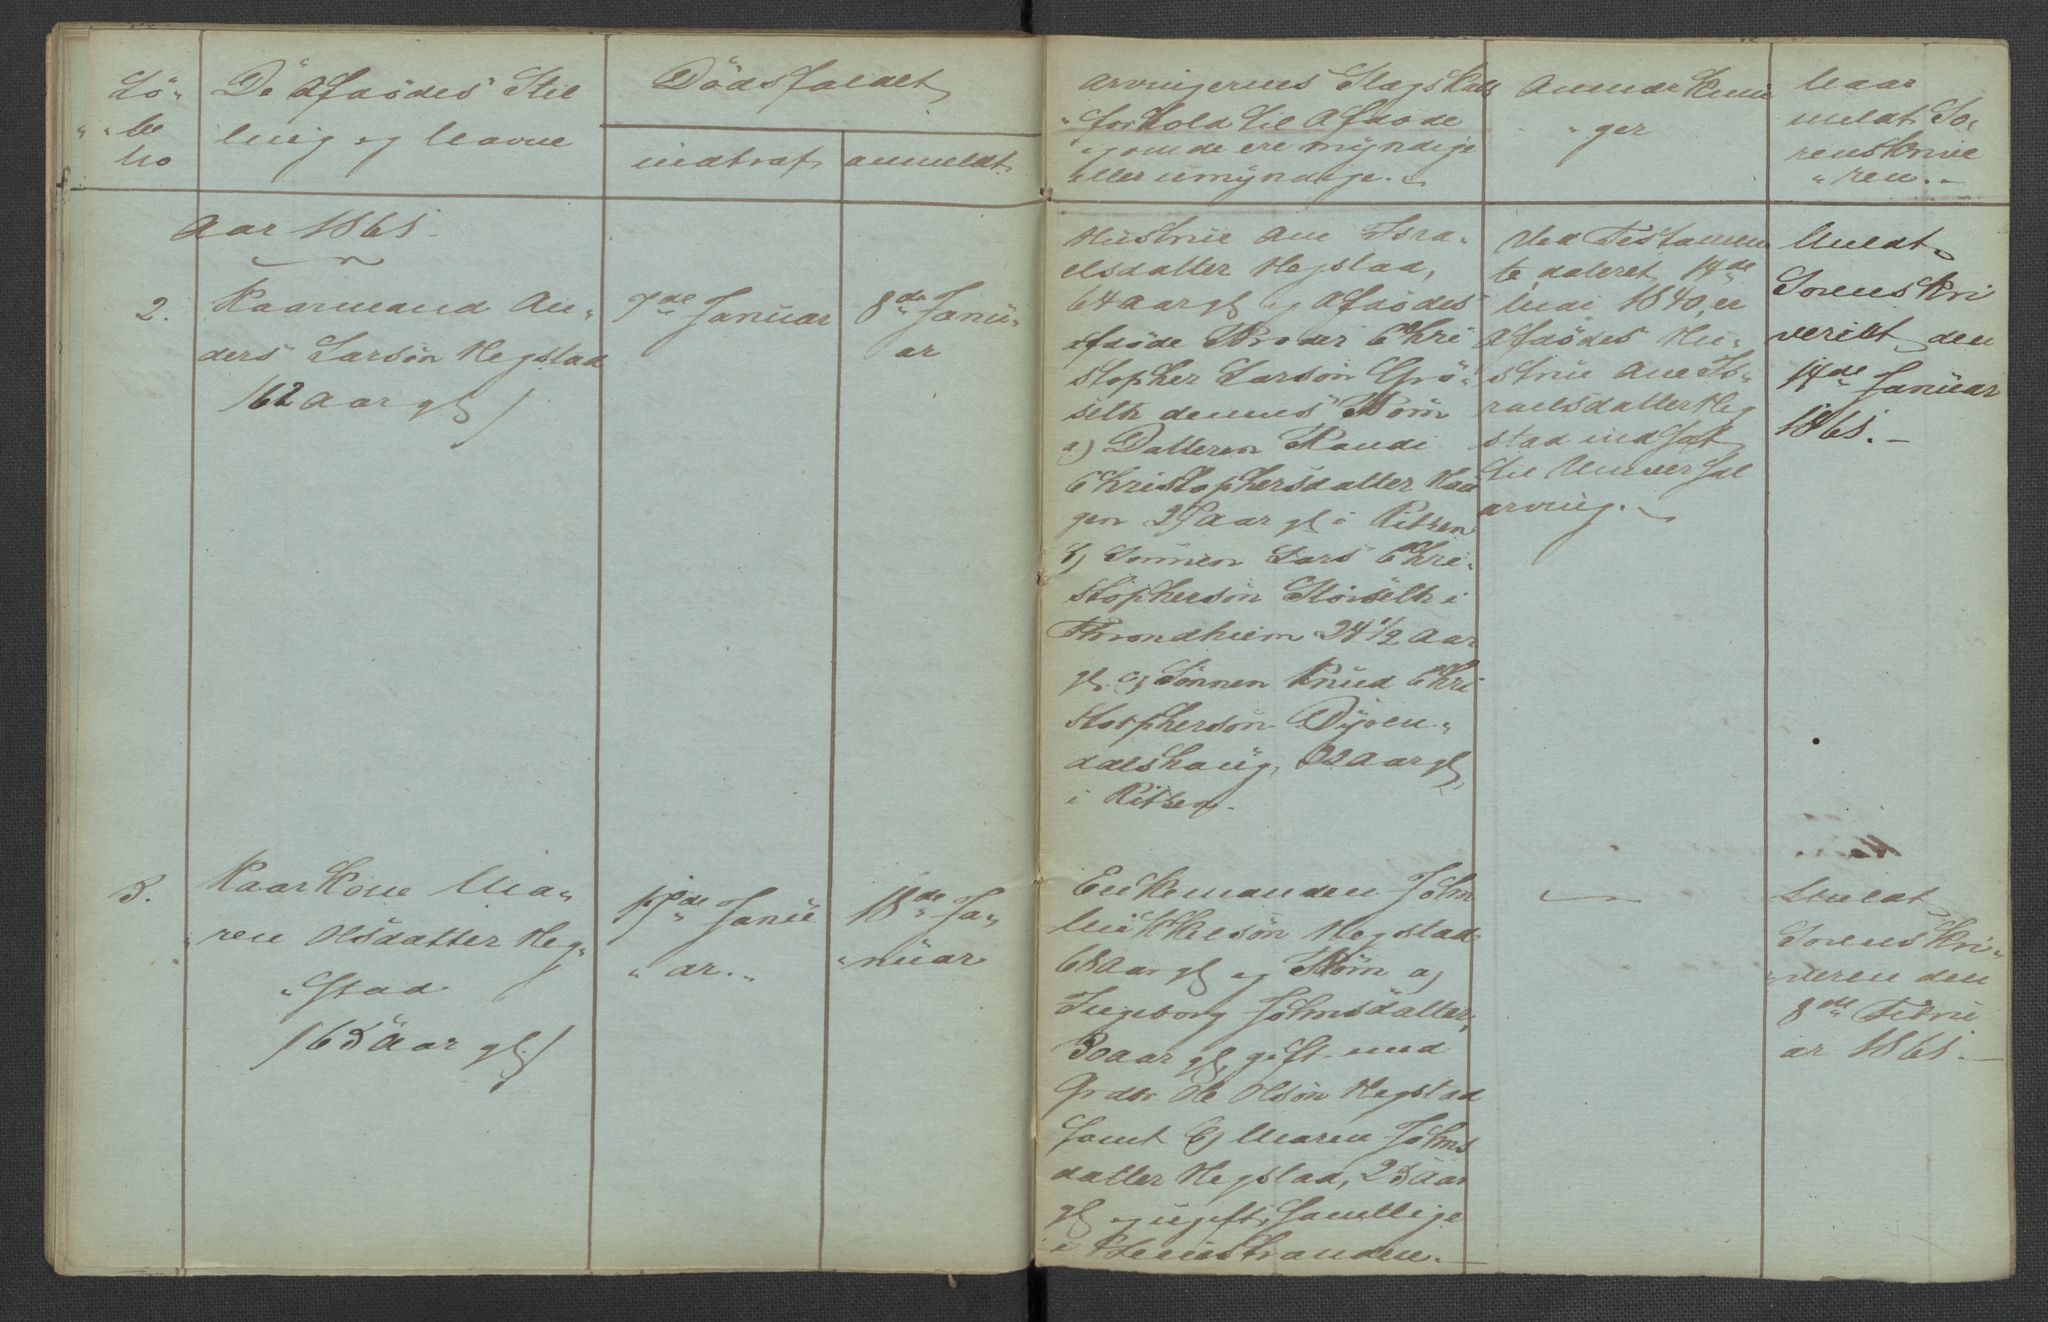 Lö„
„be
No
De Afdödes Stil
ling og Navne
Dödsfaldet
indtraf
anmeldt.
Arvingernes Slagskabs
„forhold til Afdöde
og om de ere myndige
eller umyndige.
Anmærknin
„ger
Naar
meldt So„
renskrive
„ren.
Aar 1861.
2.
Kaarmand An„
ders Larsön Hegstad
/62 Aar gl/
7de Januar
8de Janu„
ar
Hustrue Ane Isra„
elsdatter Hegstad,
64 Aar gl og Afdödes
afdöde Broder Chri
stopher Larsön Grö„
seth dennes Börn
a) Datteren Randi
Christophersdatter Hau
gen 27 Aar gl i Ritsen
b) Sönnen Lars Chri„
stophersön Störseth i
Throndhiem 24 1/2 Aar
gl. c) Sönnen Knud Chri
stophersön Dyren„
dalshaug, 22 Aar gl,
i Ritsen.
Ved Testamen
te dateret 14de
Mai 1840, er
Afdödes Hu„
strue Ane Is„
raelsdatter Heg
stad indsat
til Universal
arving.
Meldt
Sorenskri
veriet den
14de Januar
1861.
3.
Kaarkone Ma„
„ren Olsdatter Heg„
„stad
/65 Aar gl./
17de Janu
„ar.„
18de Ja„
„nuar
Enkemanden John
Mikkelsön Hegstad
68 Aar gl og Börn a)
Ingeborg Johnsdatter,
30 Aar gl, gift med
Grdbr Ole Olsön Hegstad
samt b) Maren Johns
datter Hegstad, 25 Aar
gl og ugift, samtlige
i Lensstranden.
Meldt
Sorenskri„
„veren den
8de Febru
ar 1861.